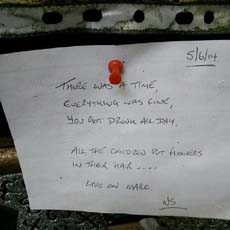 5/6/14
THERE WAS A TIME,
EVERYTHING WAS FINE,
YOU GOT DRUNK ALL DAY.
ALL THE CHILDREN PUT FLOWERS
IN THEIR HAIR ----
LIVE ON MARC
NS